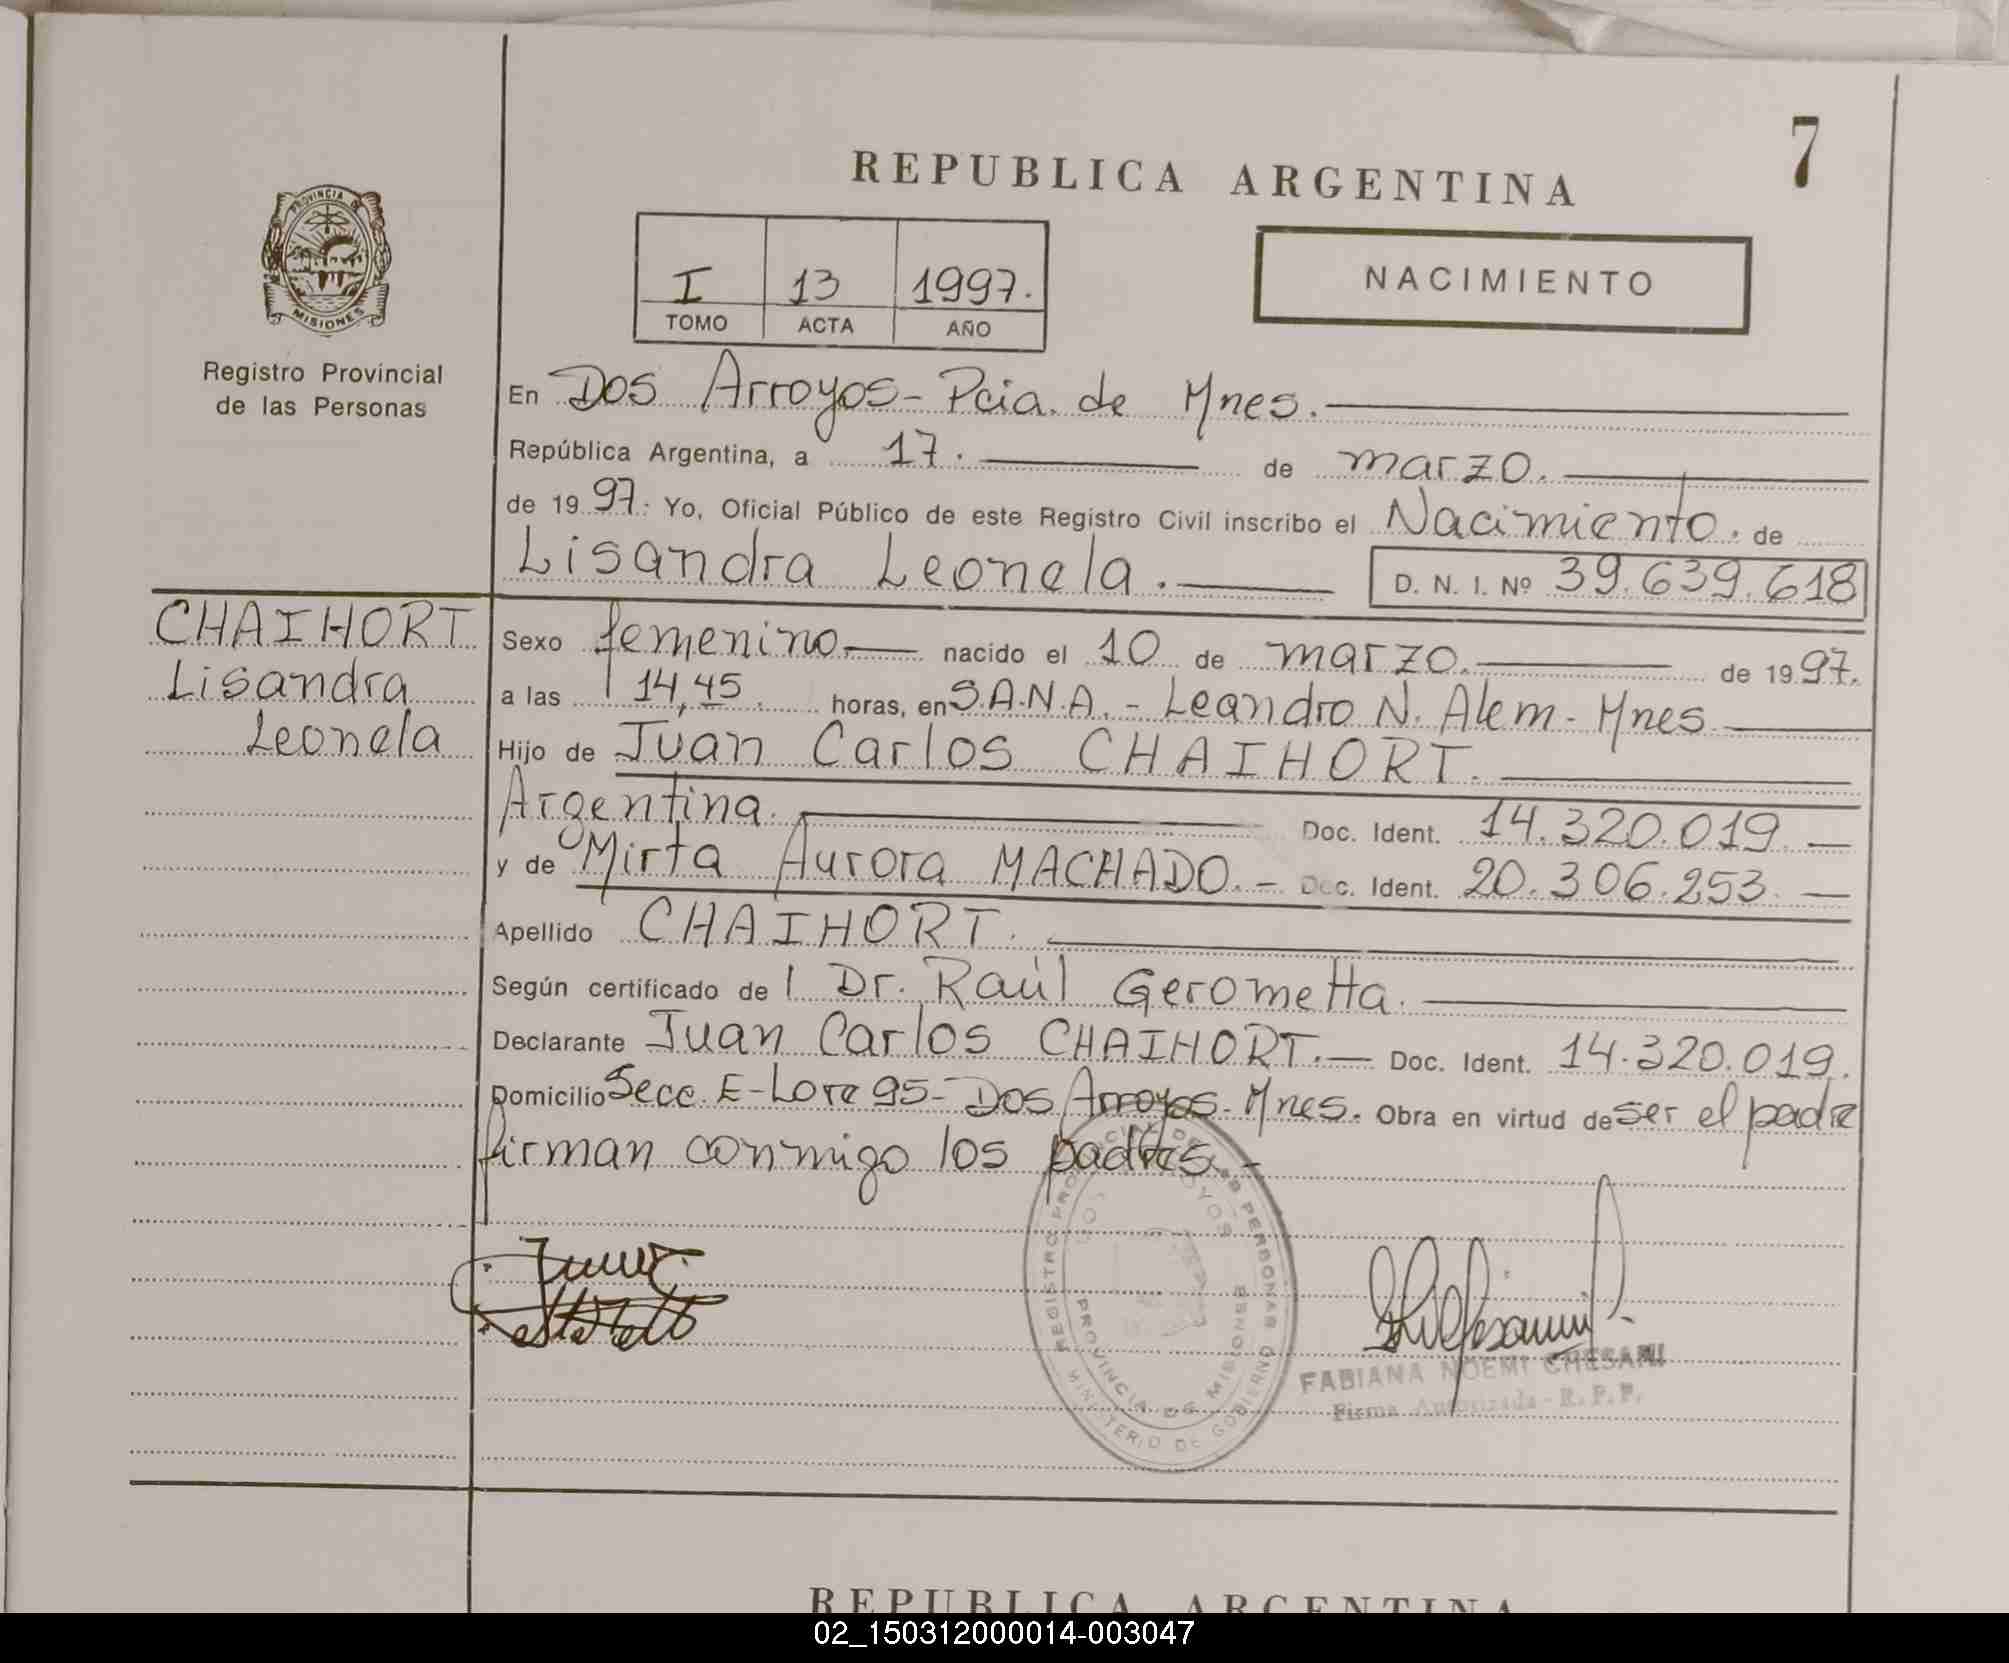 7
REPUBLICA ARGENTINA
PROVINCIA DE
MISIONES
Registro Provincial
de las Personas
I 13 1997.
TOMO ACTA AÑO
NACIMIENTO
En Dos Arroyos - Pcia. de Mnes.
República Argentina, a 17. de marzo.
de 1997. Yo, Oficial Público de este Registro Civil inscribo el Nacimiento. de
Lisandra Leonela. D. N. I. Nº 39.639.618
CHAIHORT
Lisandra
Leonela
Sexo femenino nacido el 10 de marzo. de 1997.
a las 14,45 horas, en S.A.N.A. - Leandro N. Alem - Mnes
Hijo de Juan Carlos CHAIHORT.
Argentina. Doc. Ident. 14.320.019.
y de Mirta Aurora MACHADO. - Doc. Ident. 20.306.253.
Apellido CHAIHORT.
Según certificado de Dr. Raúl Gerometta.
Declarante Juan Carlos CHAIHORT. Doc. Ident. 14.320.019.
Domicilio Secc. E - Lote 95 - Dos Arroyos - Mnes. Obra en virtud de ser el padre
firman conmigo los padres. -
REGISTRO PROVINCIAL DE LAS PERSONAS
MINISTERIO DE GOBIERNO
PROVINCIA DE MISIONES
FABIANA NOEMI CHESANI
Firma Autorizada - R.P.P.
REPUBLICA ARGENTINA
02_150312000014-003047